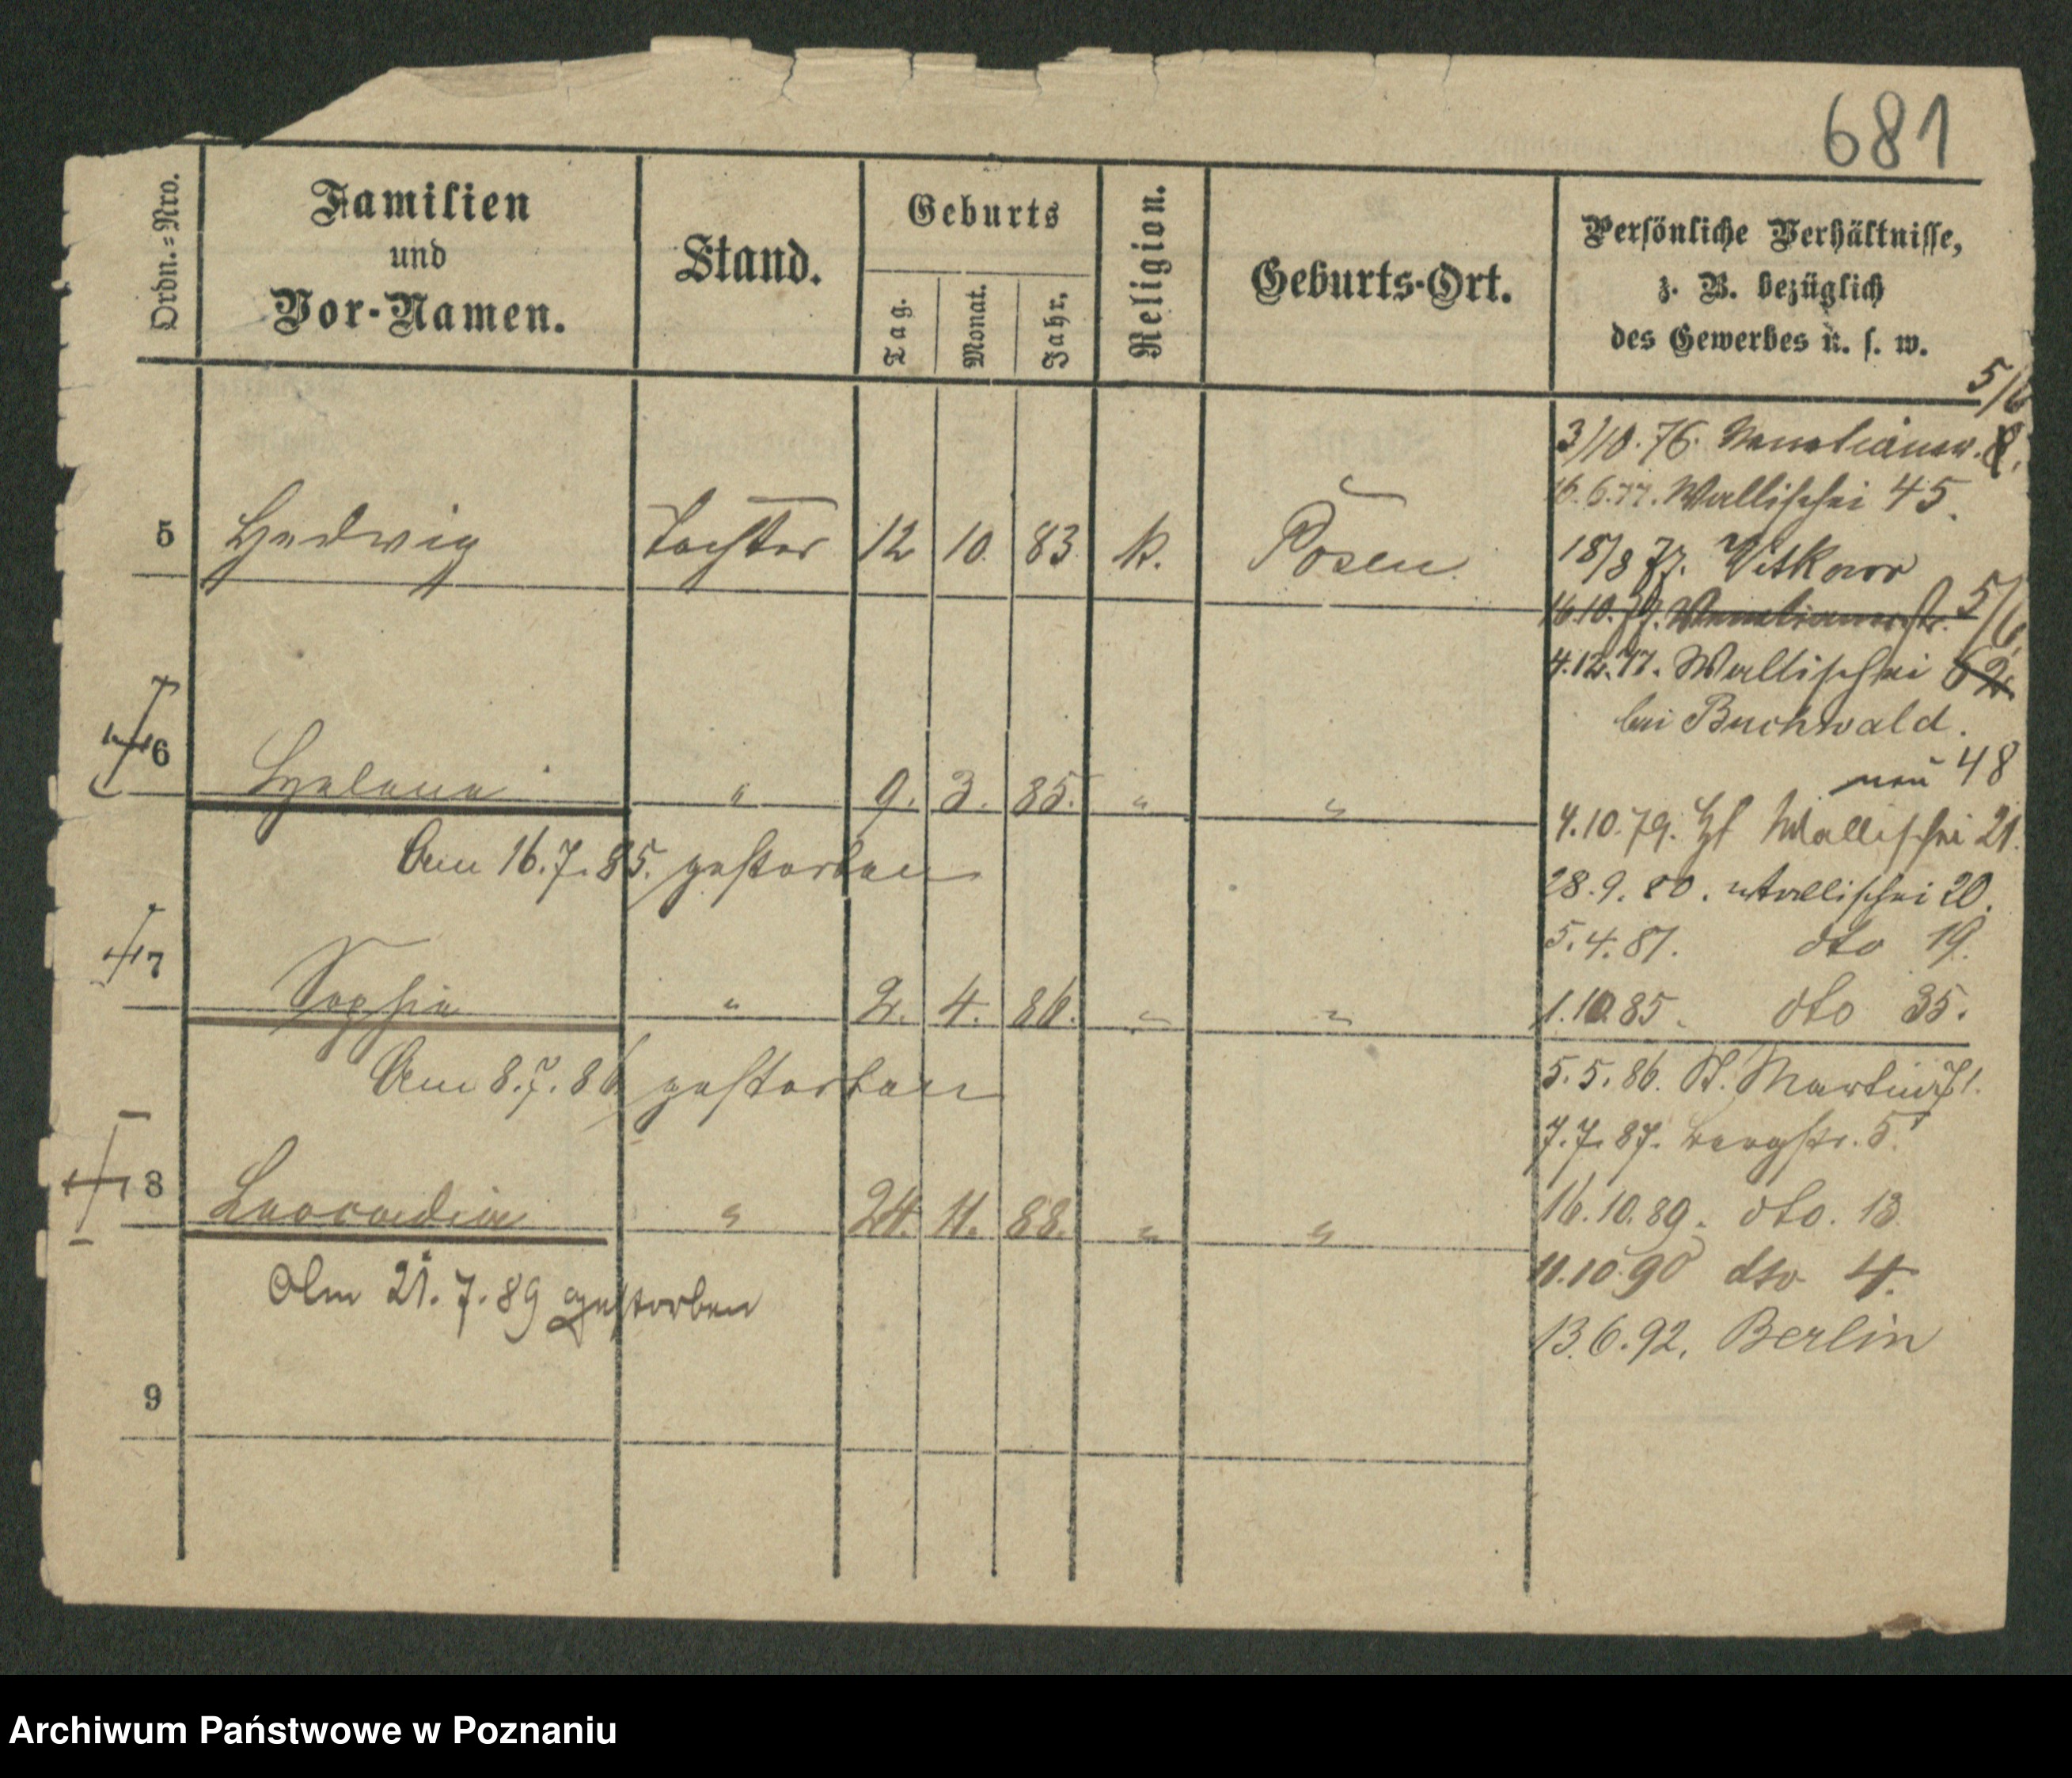 681
Ordn.=Nro.
Familien
und
Vor-Namen.
Stand.
Geburts
Tag.
Monat.
Jahr.
Religion.
Geburts-Ort.
Persönliche Verhältnisse,
z. B. bezüglich
des Gewerbes u. s. w.
5 Hedwig Tochter 12 10. 83 k. Posen.
6 Helena " 9. 3. 85. " "
Am 16.7.85. gestorben
7 Sophia " 2. 4. 86. " "
Am 8.7.86 gestorben
8 Leocadia " 24. 11. 88. " "
Am 21.7.89 gestorben
9
5/6
3/10.76. 8.
16.6.77. Wallischei 45.
18/8 77. Witkowo
16.10.77. 5/6
4.12.77. Wallischei 62
bei Buchwald.
neu 48
4.10.79. Wallischei 21.
28.9.80. Wallischei 20.
5.4.81. dto 19.
1.10.85. dto 35.
5.5.86. St. Martin 71.
7.7.87. Bergstr. 5.
16.10.89. dto. 13
11.10.90 dto 4.
13.6.92. Berlin
Archiwum Państwowe w Poznaniu